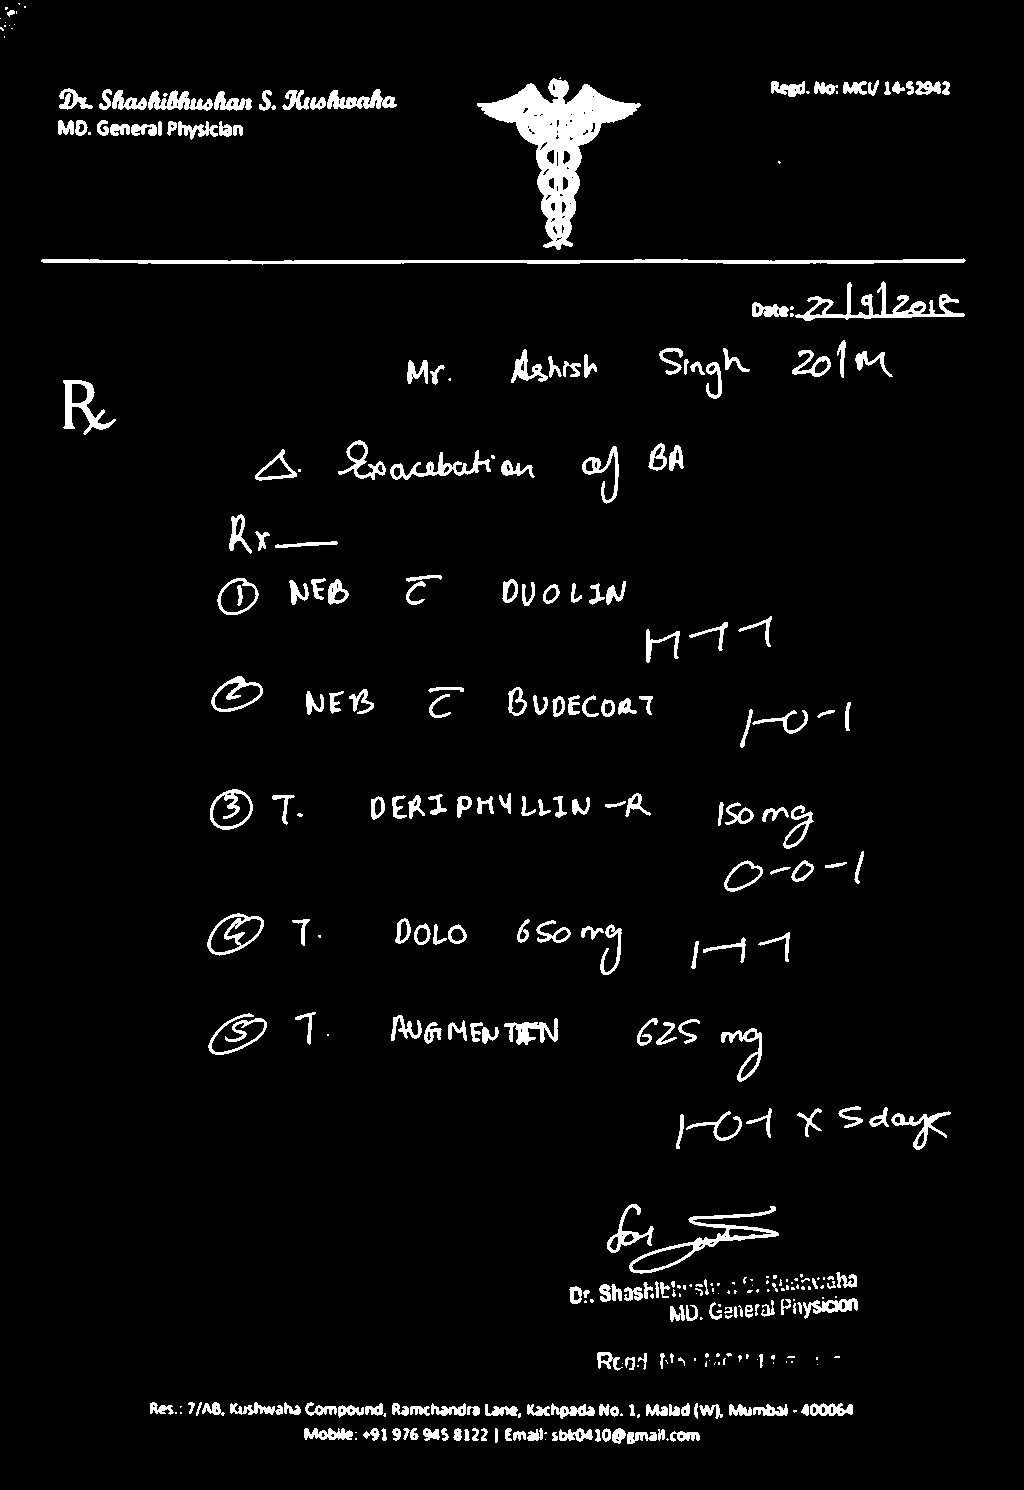 Dr. Shashibhushan S. Kushwaha
MD. General Physician
Regd. No: MCI/ 14-52942
Date: 22/9/2018
Mr. Ashish Singh 20/M
Rx
Δ. Exacebation of BA
Rx
① NEB c̄ DUOLIN
1-1-1-1
② NEB c̄ BUDECORT
1-0-1
③ T. DERIPHYLLIN-R 150 mg
0-0-1
④ T. DOLO 650 mg 1-1-1
⑤ T. AUGMENTIN 625 mg
1-0-1 x 5 days
for
Dr. Shashibhushan S. Kushwaha
MD. General Physician
Regd. No.: MCI/
Res.: 7/AB, Kushwaha Compound, Ramchandra Lane, Kachpada No. 1, Malad (W), Mumbai - 400064
Mobile: +91 976 945 8122 | Email: sbk0410@gmail.com